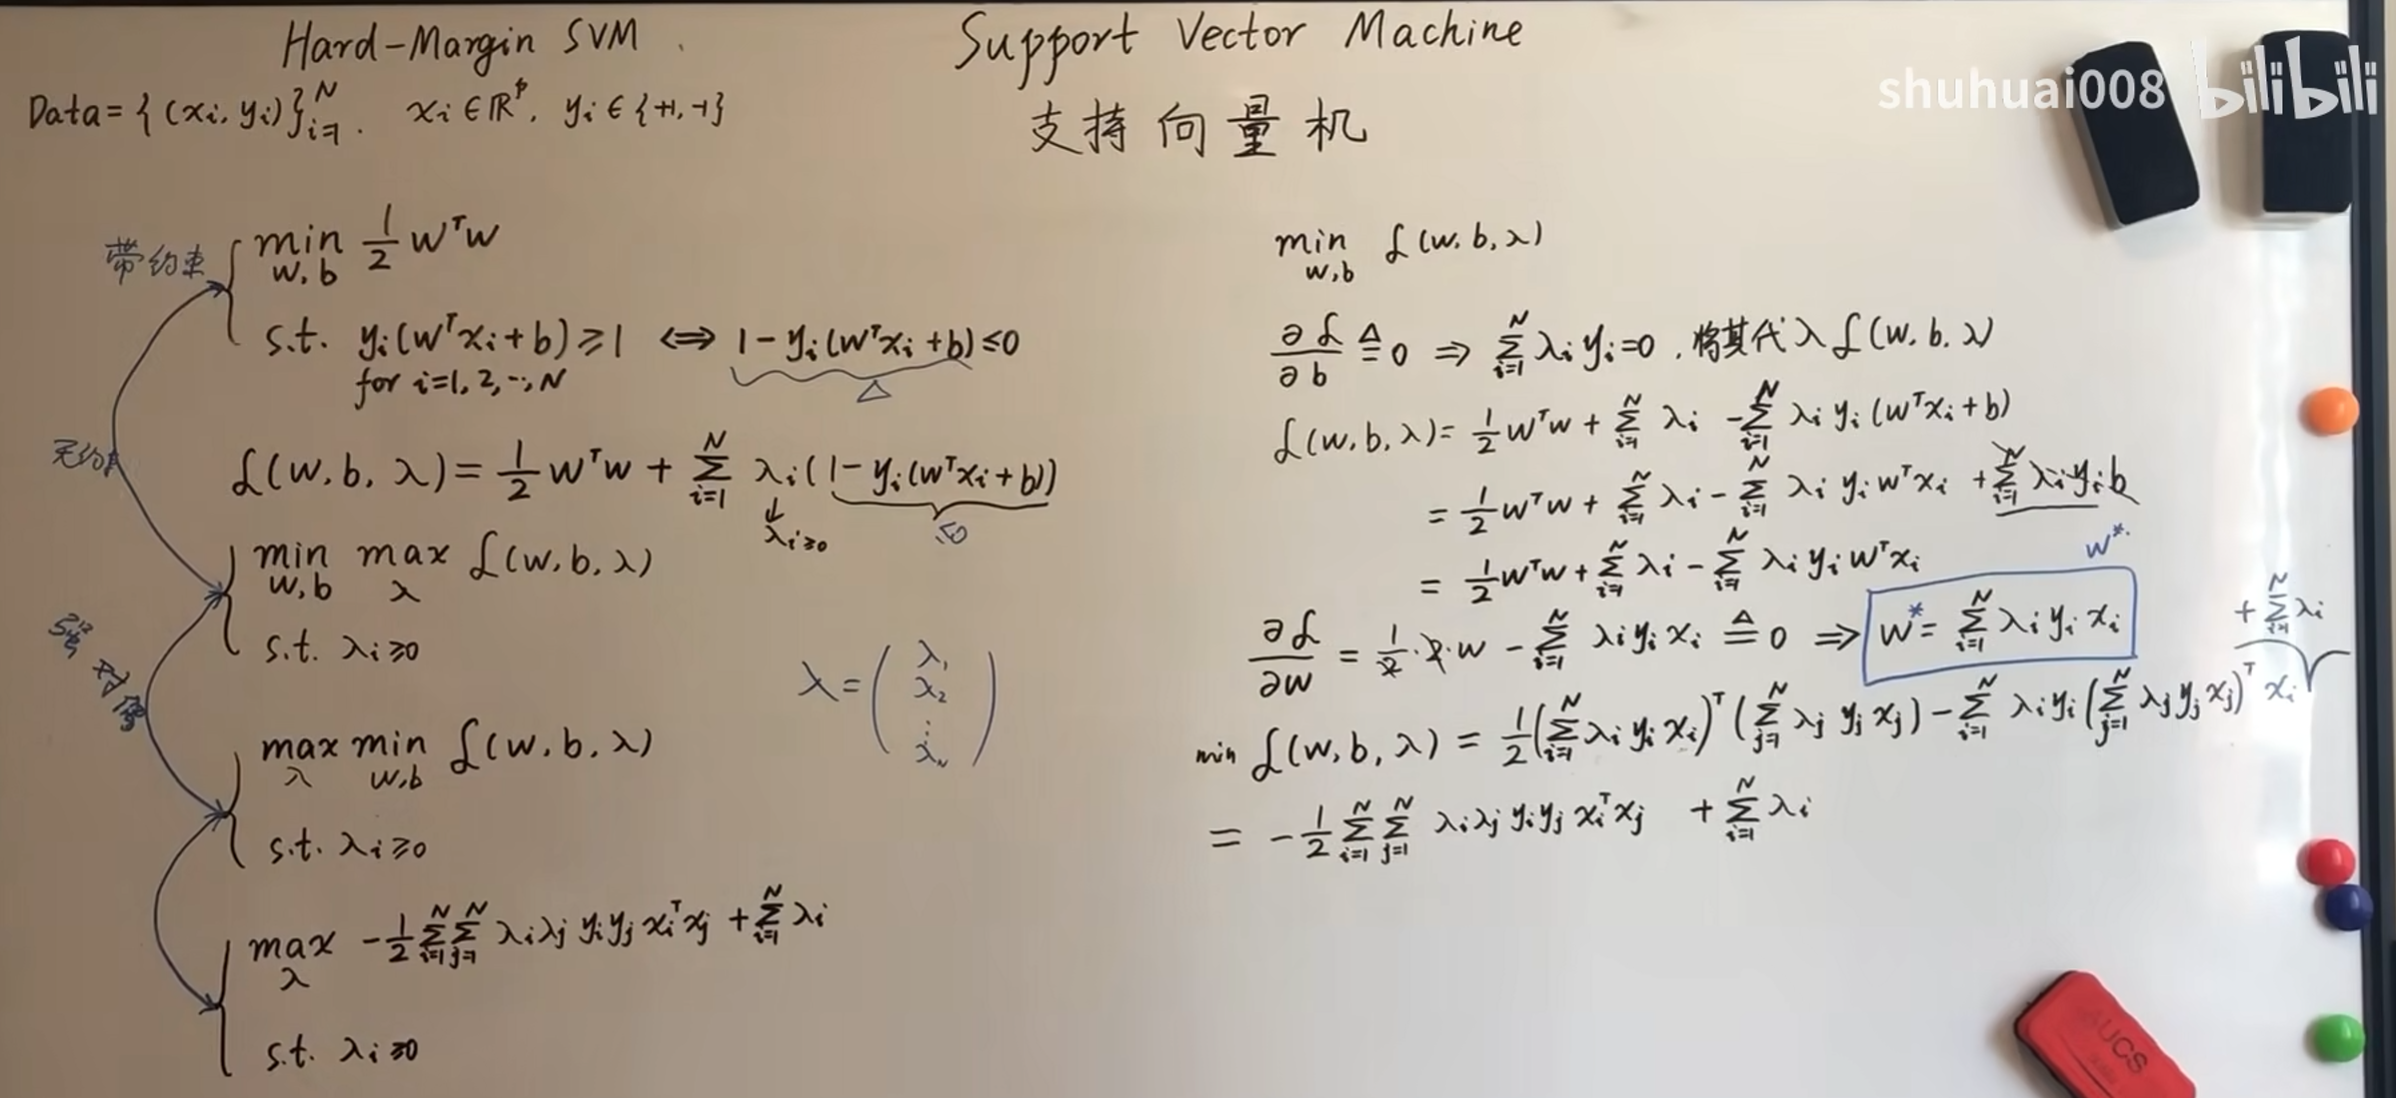 Hard-Margin SVM
Data = { (xi, yi) }_{i=1}^{N}. xi ∈ ℝ^p, yi ∈ {+1, -1}
Support Vector Machine
支持向量机
shuhuai008 bilibili
带约束
min_{w,b} 1/2 w^T w
s.t. yi(w^T xi + b) ≥ 1 ⇔ 1 - yi(w^T xi + b) ≤ 0
for i=1, 2, ..., N
△
无约束
ℒ(w, b, λ) = 1/2 w^T w + Σ_{i=1}^{N} λi (1 - yi(w^T xi + b))
↓
λi ≥ 0
≤0
min_{w,b} max_{λ} ℒ(w, b, λ)
s.t. λi ≥ 0
强对偶
λ = ( λ1 λ2 ⋮ λN )
max_{λ} min_{w,b} ℒ(w, b, λ)
s.t. λi ≥ 0
max_{λ} -1/2 Σ_{i=1}^{N} Σ_{j=1}^{N} λi λj yi yj xi^T xj + Σ_{i=1}^{N} λi
s.t. λi ≥ 0
min_{w,b} ℒ(w, b, λ)
∂ℒ/∂b ≜ 0 ⇒ Σ_{i=1}^{N} λi yi = 0. 将其代入 ℒ(w, b, λ)
ℒ(w, b, λ) = 1/2 w^T w + Σ_{i=1}^{N} λi - Σ_{i=1}^{N} λi yi (w^T xi + b)
= 1/2 w^T w + Σ_{i=1}^{N} λi - Σ_{i=1}^{N} λi yi w^T xi + Σ_{i=1}^{N} λi yi b
= 1/2 w^T w + Σ_{i=1}^{N} λi - Σ_{i=1}^{N} λi yi w^T xi
w*.
∂ℒ/∂w = 1/2 · 2 · w - Σ_{i=1}^{N} λi yi xi ≜ 0 ⇒ w* = Σ_{i=1}^{N} λi yi xi
+ Σ_{i=1}^{N} λi
min ℒ(w, b, λ) = 1/2 (Σ_{i=1}^{N} λi yi xi)^T (Σ_{j=1}^{N} λj yj xj) - Σ_{i=1}^{N} λi yi (Σ_{j=1}^{N} λj yj xj)^T xi
= -1/2 Σ_{i=1}^{N} Σ_{j=1}^{N} λi λj yi yj xi^T xj + Σ_{i=1}^{N} λi
AUCS